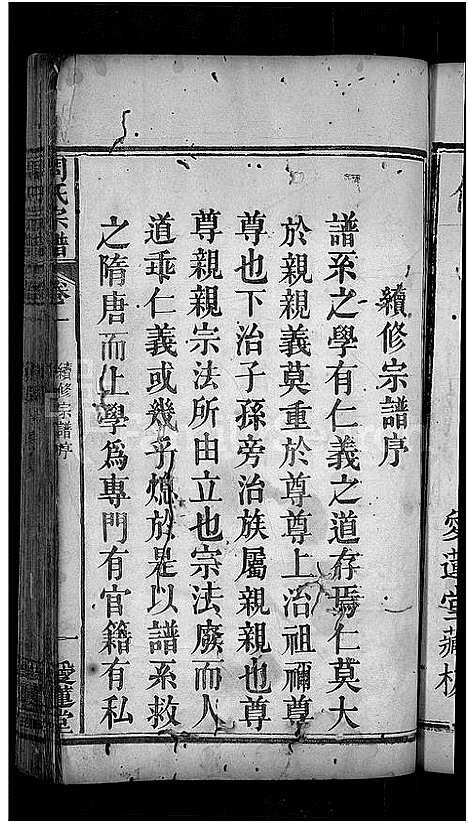 愛蓮堂藏板
續修宗譜序
譜系之學有仁義之道存焉仁莫大
於親親義莫重於尊尊上治祖禰尊
尊也下治子孫旁治族屬親親也尊
尊親親宗法所由立也宗法廢而人
道乖仁義或幾乎熄於是以譜系救
之隋唐而上學爲專門有官籍有私
周氏宗譜
卷一
續修宗譜序
一
愛蓮堂